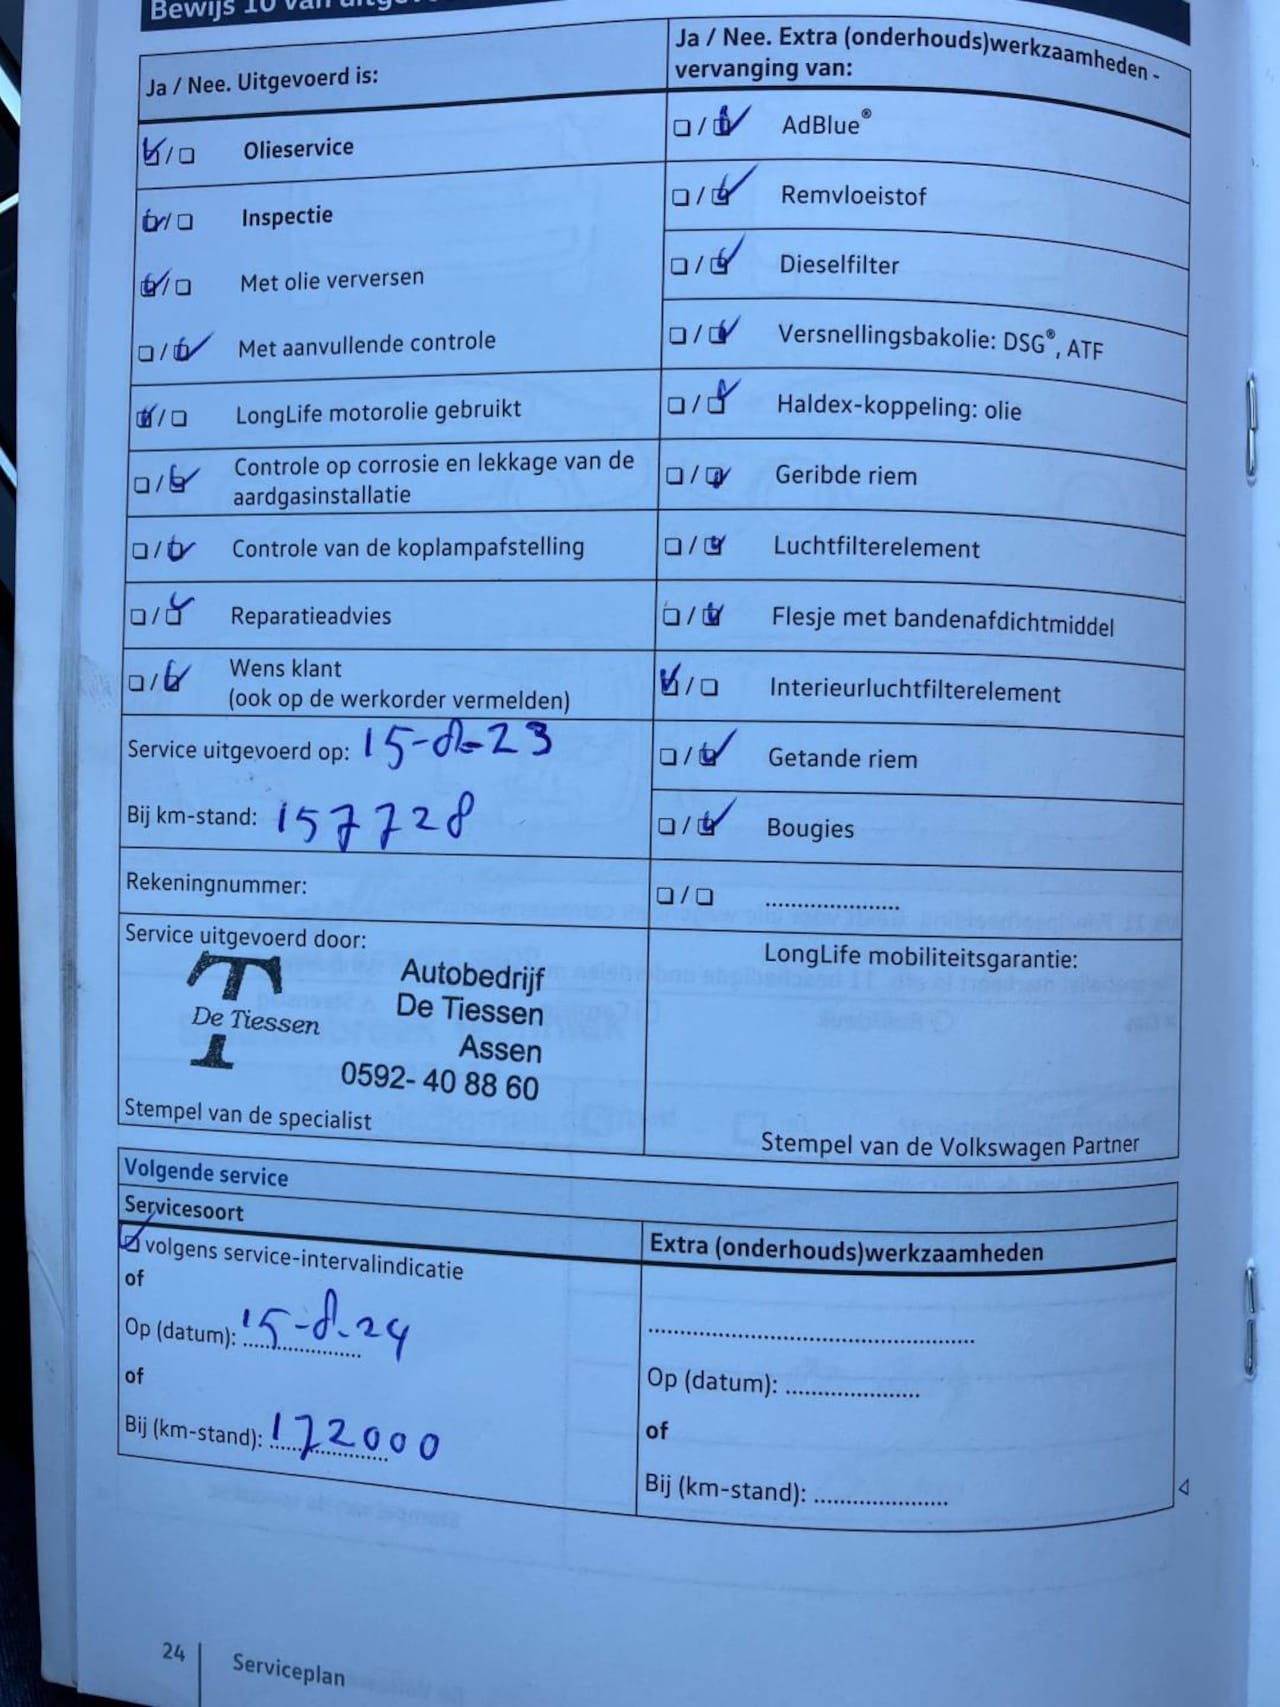 Bewijs 10 van
Ja / Nee. Uitgevoerd is:
Olieservice
Inspectie
Met olie verversen
Met aanvullende controle
LongLife motorolie gebruikt
Controle op corrosie en lekkage van de
aardgasinstallatie
Controle van de koplampafstelling
Reparatieadvies
Wens klant
(ook op de werkorder vermelden)
Service uitgevoerd op: 15-8-23
Bij km-stand: 157728
Rekeningnummer:
Service uitgevoerd door:
T
De Tiessen
Autobedrijf
De Tiessen
Assen
0592- 40 88 60
Stempel van de specialist
Ja / Nee. Extra (onderhouds)werkzaamheden -
vervanging van:
AdBlue®
Remvloeistof
Dieselfilter
Versnellingsbakolie: DSG®, ATF
Haldex-koppeling: olie
Geribde riem
Luchtfilterelement
Flesje met bandenafdichtmiddel
Interieurluchtfilterelement
Getande riem
Bougies
....................
LongLife mobiliteitsgarantie:
Stempel van de Volkswagen Partner
Volgende service
Servicesoort
volgens service-intervalindicatie
of
Op (datum): 15-8-24
of
Bij (km-stand): 172000
Extra (onderhouds)werkzaamheden
................................................
Op (datum): ....................
of
Bij (km-stand): ....................
24
Serviceplan